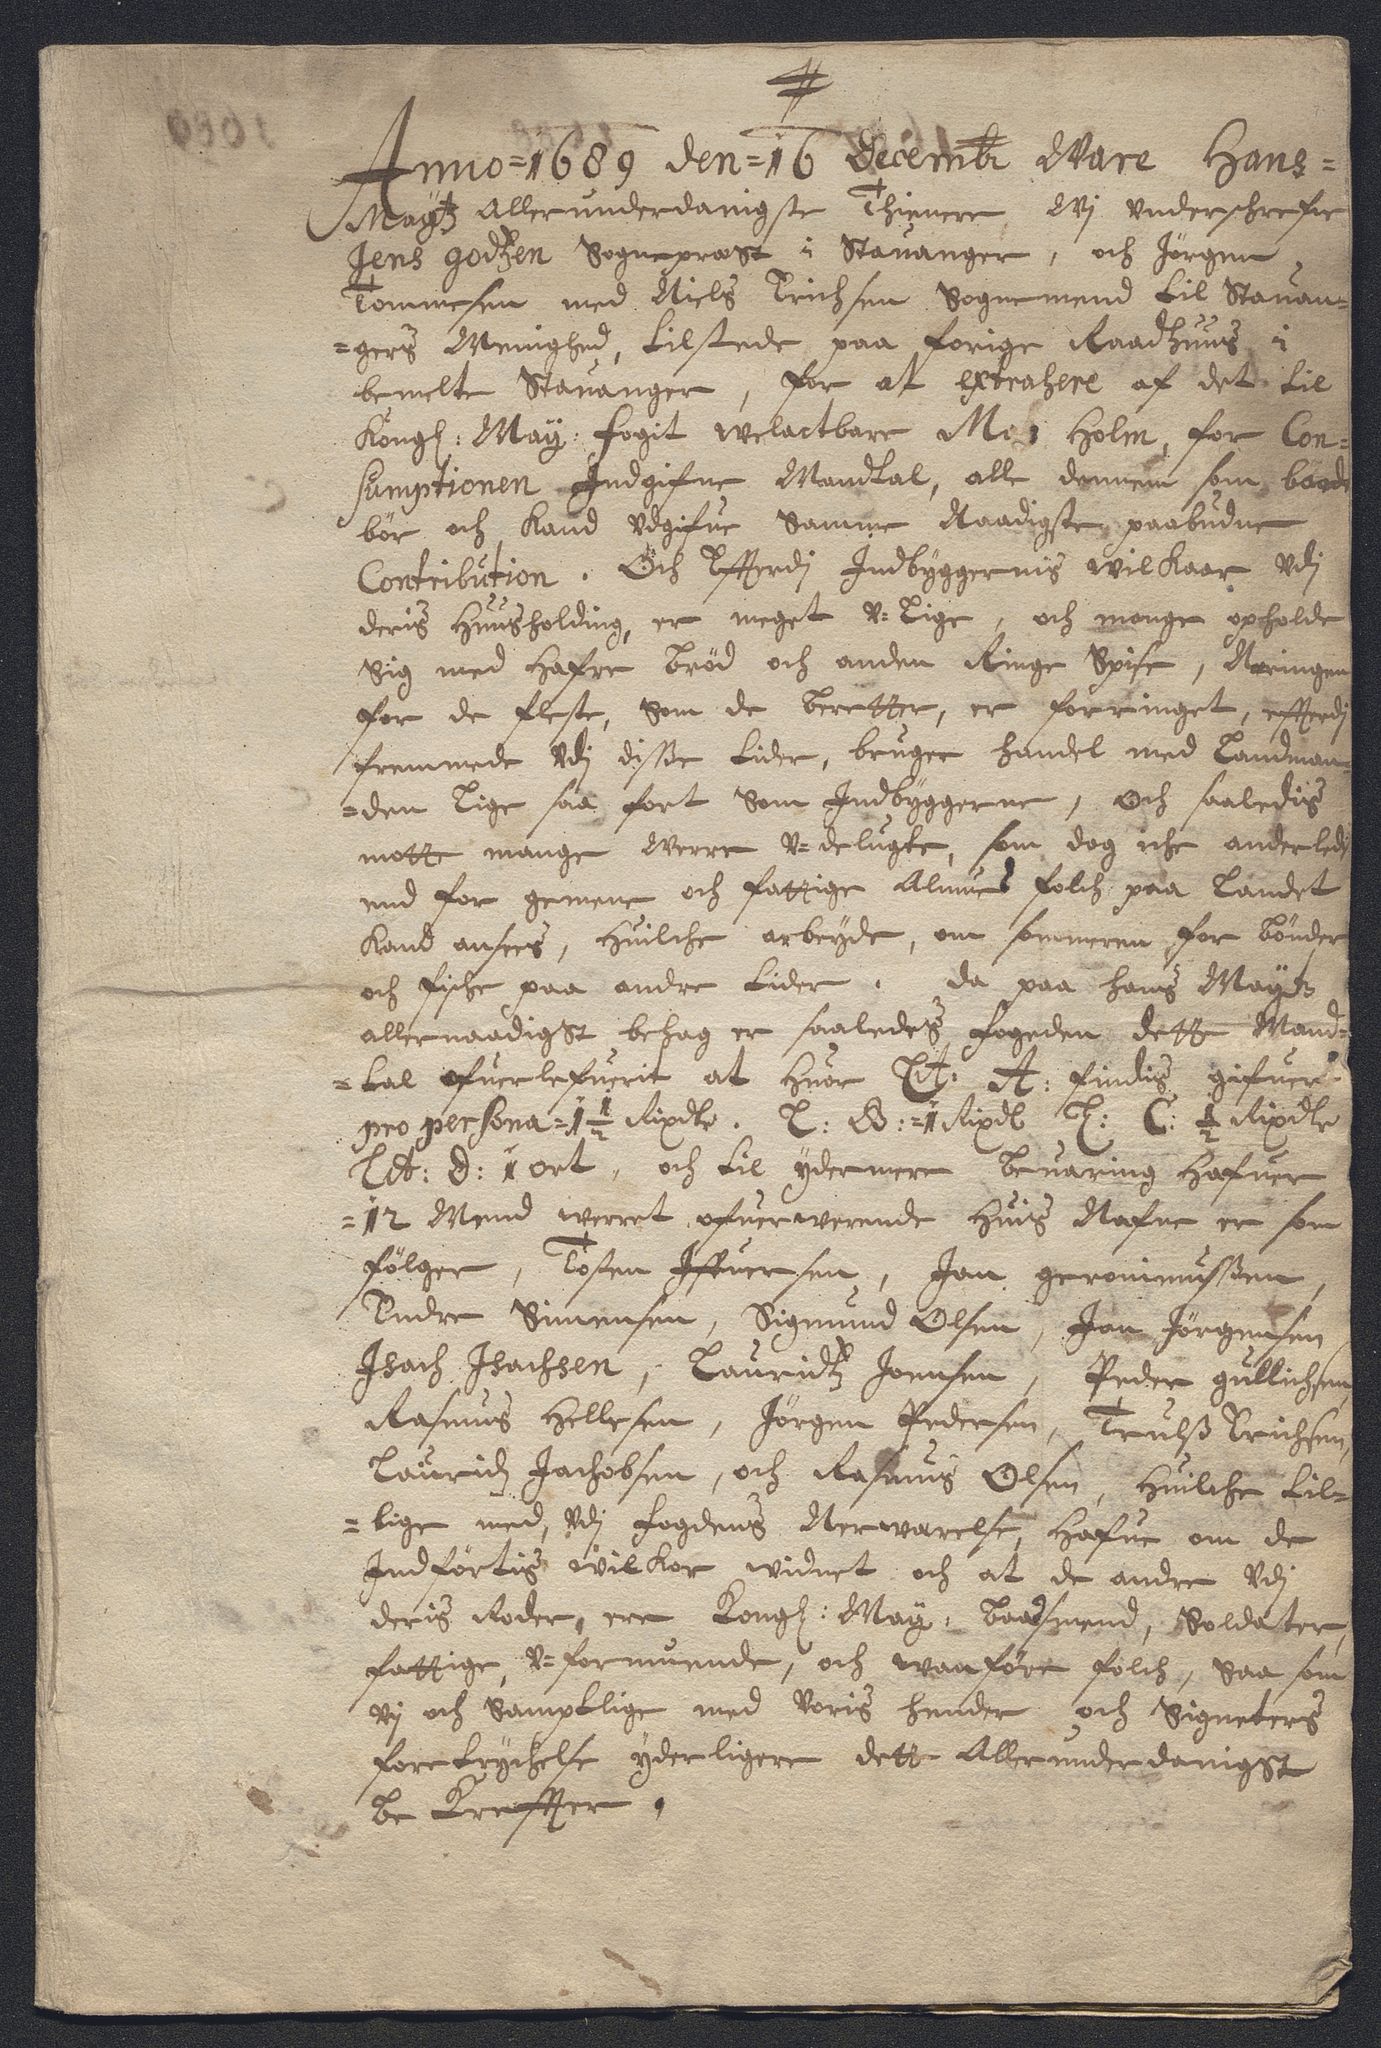 Anno=1689 den=16 Decembr Ware Hans=
Maytz Allerunderdanigste Thienere, Wj underschrefne
Jens godtzen Sognepræst i Stauanger, och Jörgen
Tommesen med Niels Erichsen Sognemend til Stauan=
=gers Menighed, tilstede paa forige Raadhuus i
bemelte Stauanger, for at extrahere af det til
Kongl: May: fogit welactbare Holm, for Con=
sumptionen Indgifne Mandtal, alle dennem som baade
bör och kand udgifue Samme Naadigste paabudne
Contribution. Och Efterdj Indbyggernis wilkaar udj
deris Huusholding, er meget u=lige, och mange opholde
Sig med hafre bröd och anden Ringe Spise, Næringen
for de fleste, Som de beretter, er forringet, efterdj
fremmede udj disse tider, bruger handel med Landman=
=den lige saa fort Som Indbyggerne, Och saaledis
motte mange were u=delugte, som dog iche anderledis
end for gemene och fattige Almues folch paa Landet
kand ansees, huilche arbeyde, om sommeren for bönder
och fische paa andre tider. da paa hans Maytz
allernaadigst behag er saaledes fogeden dette Mand=
=tal ofuerlefuerit at huor Lit: A: findis gifuer
pro persona=1½ Rixdlr. L: B:=1 Rixdl L: C: ½ Rixdlr
Litr: D: 1 ort, och til ydermere bewaring hafuer
=12 Mend werret ofuerwerende huis Nafne er som
fölger, Tosten Ifuersen, Jan geronimussen,
Endre Simensen, Sigmund Olsen, Jan Jörgensen
Isach Isachsen, Lauridtz Joensen, Peder gullichsen,
Rasmus Hellesen, Jörgen Pedersen, Trulss Erichsen,
Lauridz Jachobsen, och Rasmus Olsen, huilche til=
=lige med, udj fogdens Nerwarelse, hafue om de
Indförtis wilkor widnet och at de andre udj
deris Roder, ere Kongl: May: baadsmend, Soldater,
fattige, u=formuende, och wanföre folch, saa som
wj och Samptlige med woris hender och Signeters
foretrychelse yderligere dette Allerunderdanigst
be Krefter.